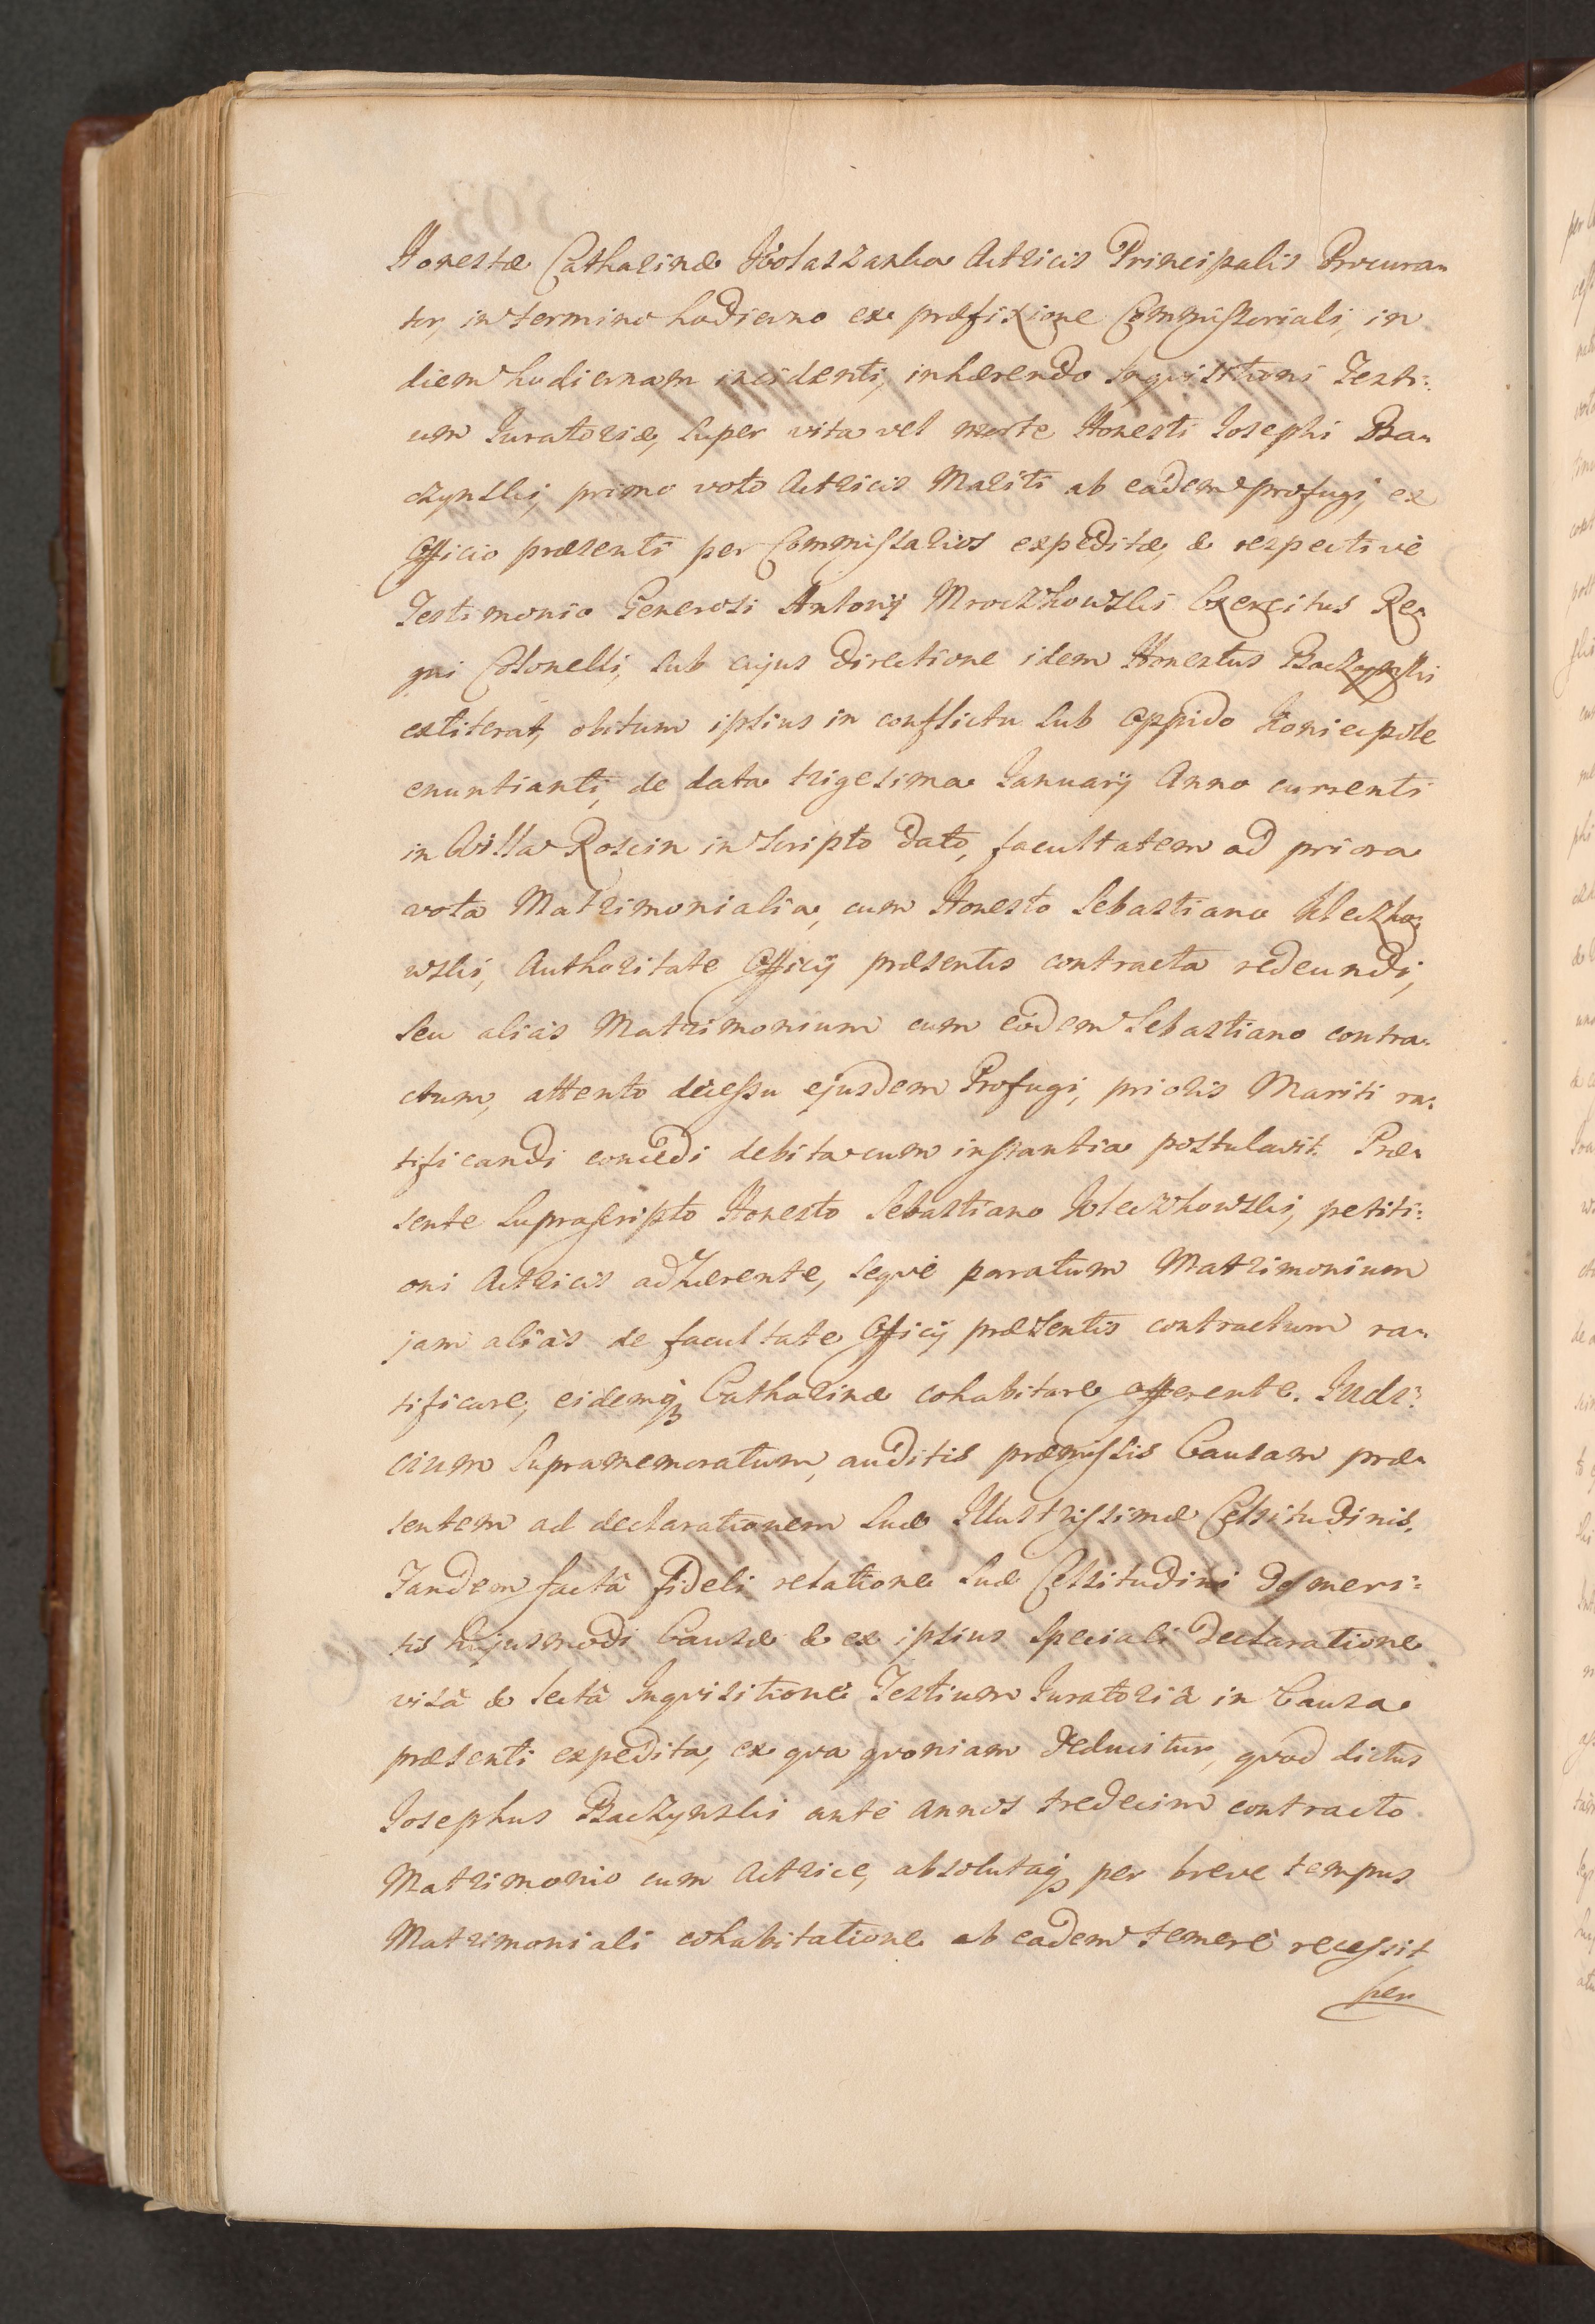 Honestæ Catharinæ Wolaszanka Actricis Principalis Procura-
tor, in termino hodierno ex præfixione Commissoriali, in
diem hodiernam incidenti, inhærendo Inquisitioni Testi:
um Juratoriæ, super vita vel morte Honesti Josephi Ba-
czynski, primo voto Actricis Mariti ab eadem profugi, ex
Officio præsenti per Commissarios expeditæ, & respectivè
Testimonio Generosi Antonij Mroczkowski Exercitus Re-
gni Colonelli, sub cujus directione idem Honestus Baczynski
extiterat, obitum ipsius in conflictu sub Oppido Koniecpole
enuntianti, de data trigesima Januarij Anno currenti
in Villa Roscin in scripto dato, facultatem ad priora
vota Matrimonialia, cum Honesto Sebastiano Kleczko-
wski, Authoritate Officij præsentis contracta redeundi,
seu aliàs Matrimonium cum eôdem Sebastiano contra-
ctum, attento decessu ejusdem Profugi, prioris Mariti ra-
tificandi concedi debita cum instantia postulavit. Præ-
sente suprascripto Honesto Sebastiano Kleczkowski, petiti:
oni Actricis adhærente, seqvè paratum Matrimonium
jam aliàs de facultate Officij præsentis contractum ra-
tificare, eidemq Catharinæ cohabitare offerente. Judi:
cium supramemoratum, auditis præmissis Causam præ-
sentem ad declarationem Suæ Illustrissimæ Celsitudinis.
Tandem factâ fideli relatione Suæ Celsitudini de meri:
tis hujusmodi Causæ & ex ipsius speciali declaratione
visâ & lectâ Inqvisitione Testium Juratoriâ in Causa
præsenti expedita, ex qva qvoniam deducitur, qvod dictus
Josephus Baczynski antè annos tredecim contracto
Matrimonio cum Actrice, absolutaq per breve tempus
Matrimoniali cohabitatione ab eadem temerè recessit
per